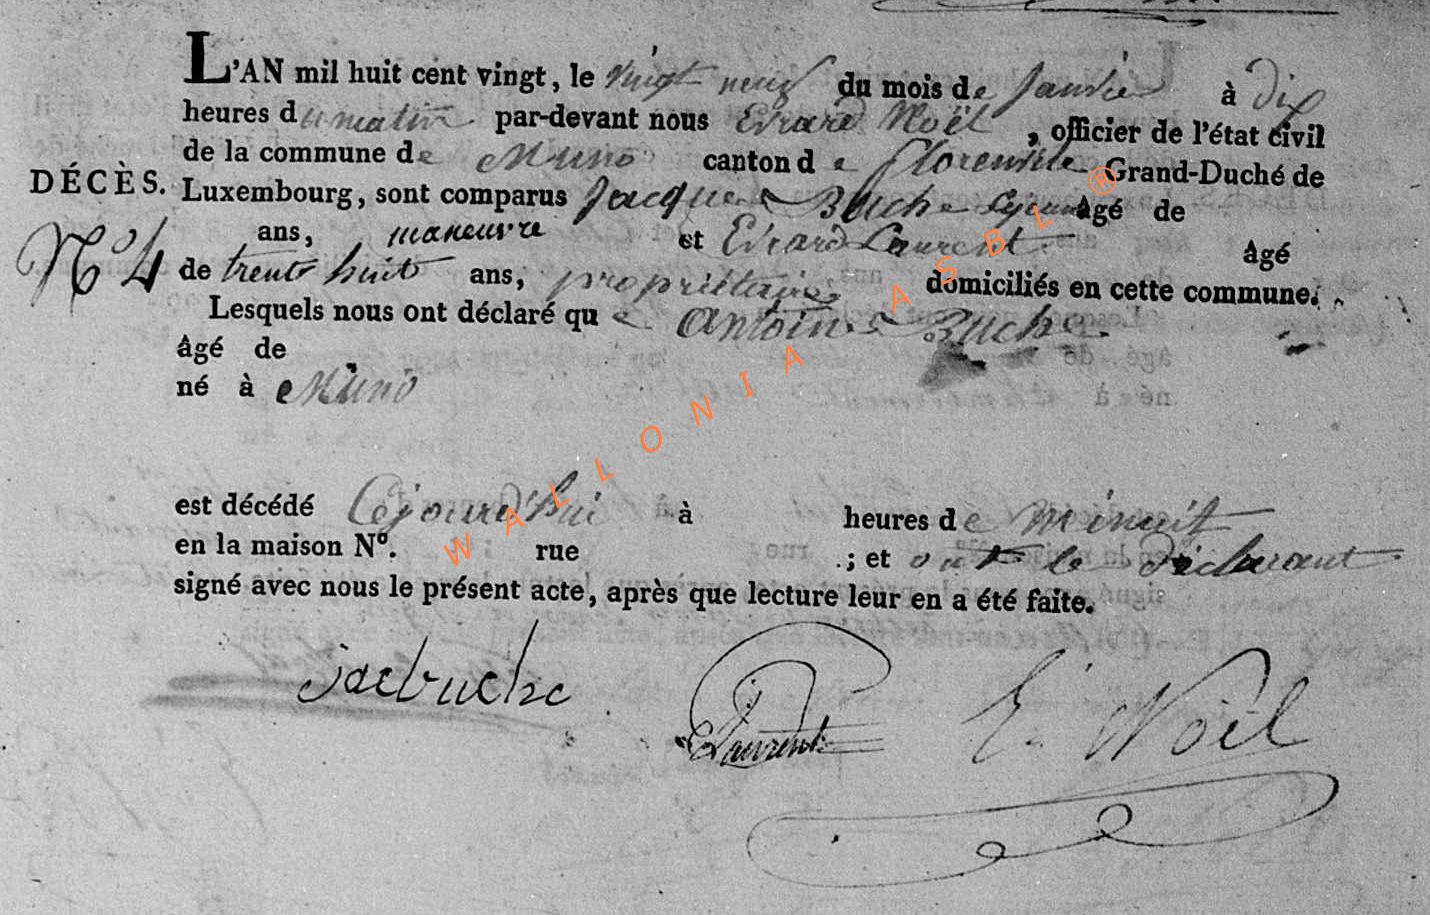 L'AN mil huit cent vingt, le vingt neuf du mois de Janvier à dix
heures du matin par-devant nous Evrard Noël, officier de l'état civil
de la commune de Muno canton de florenville Grand-Duché de
DÉCÈS.
Luxembourg, sont comparus Jacques Buche Lejeune âgé de
ans, maneuvre et Evrard Laurent âgé
N° 4
de trente huit ans, propriétaire domiciliés en cette commune.
Lesquels nous ont déclaré que Antoine Buche
âgé de
né à Muno
est décédé Cejourd'hui à heures de Minuit
en la maison N°. rue ; et ont le déclarant
signé avec nous le présent acte, après que lecture leur en a été faite.
Jacbuche E Laurent E. Noël
WALLONIA ASBL ®